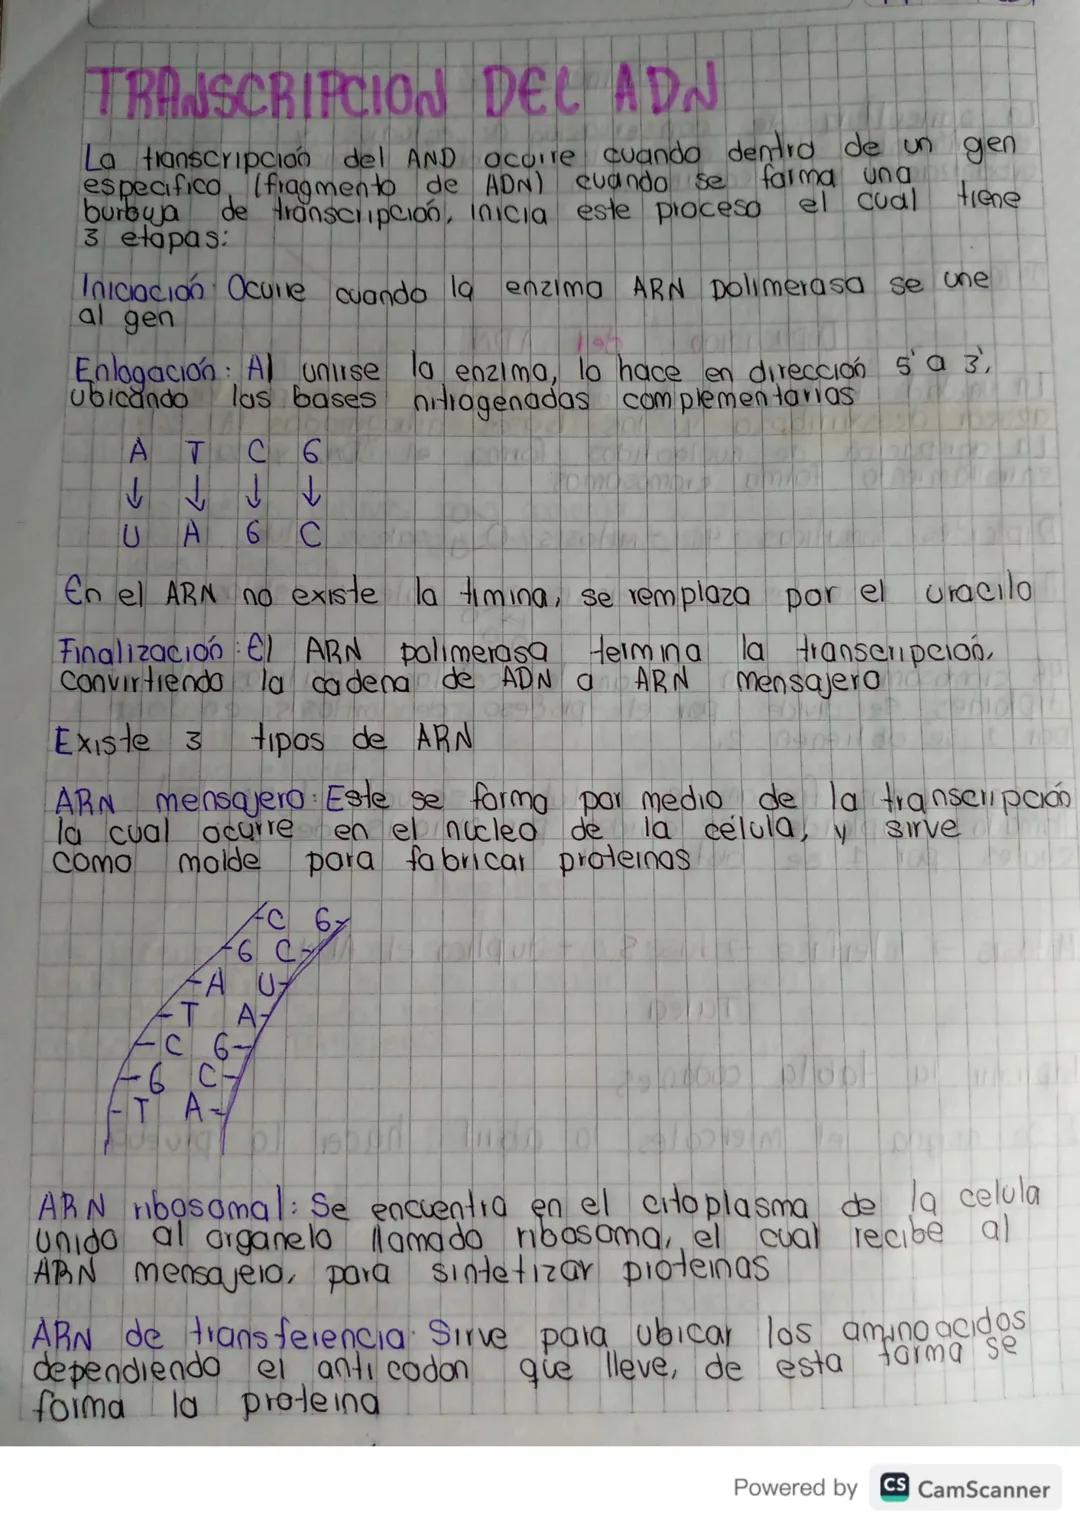 TRANSCRIPCION DEL ADN
La transcripción del AND ocurre cuando dentro de un gen
especifico, (fragmento de ADN) cuando se forma una
burbuja de transcripción, inicia este proceso el cual tiene
3 etapas:
Iniciación: Ocurre cuando la enzima ARN polimerasa se une
al gen
Enlogación: Al unirse la enzima, lo hace en dirección 5' a 3',
ubicando las bases nitrogenadas complementarias
A T C G
↓ ↓ ↓ ↓
U A G C
En el ARN no existe la timina, se remplaza por el uracilo
Finalización: El ARN polimerasa termina la transcripción,
convirtiendo la cadena de ADN a ARN mensajero
Existe 3 tipos de ARN
ARN mensajero: Este se forma por medio de la transcripción
la cual ocurre en el nucleo de la célula, y sirve
como molde para fabricar proteinas
C G
G C
A U
T A
C G
G C
T A
ARN ribosomal: Se encuentra en el citoplasma de la celula
unido al organelo llamado ribosoma, el cual recibe al
ARN mensajero, para sintetizar proteinas
ARN de transferencia: Sirve para ubicar los aminoacidos
dependiendo el anticodon que lleve, de esta forma se
forma la proteina
Powered by CS CamScanner